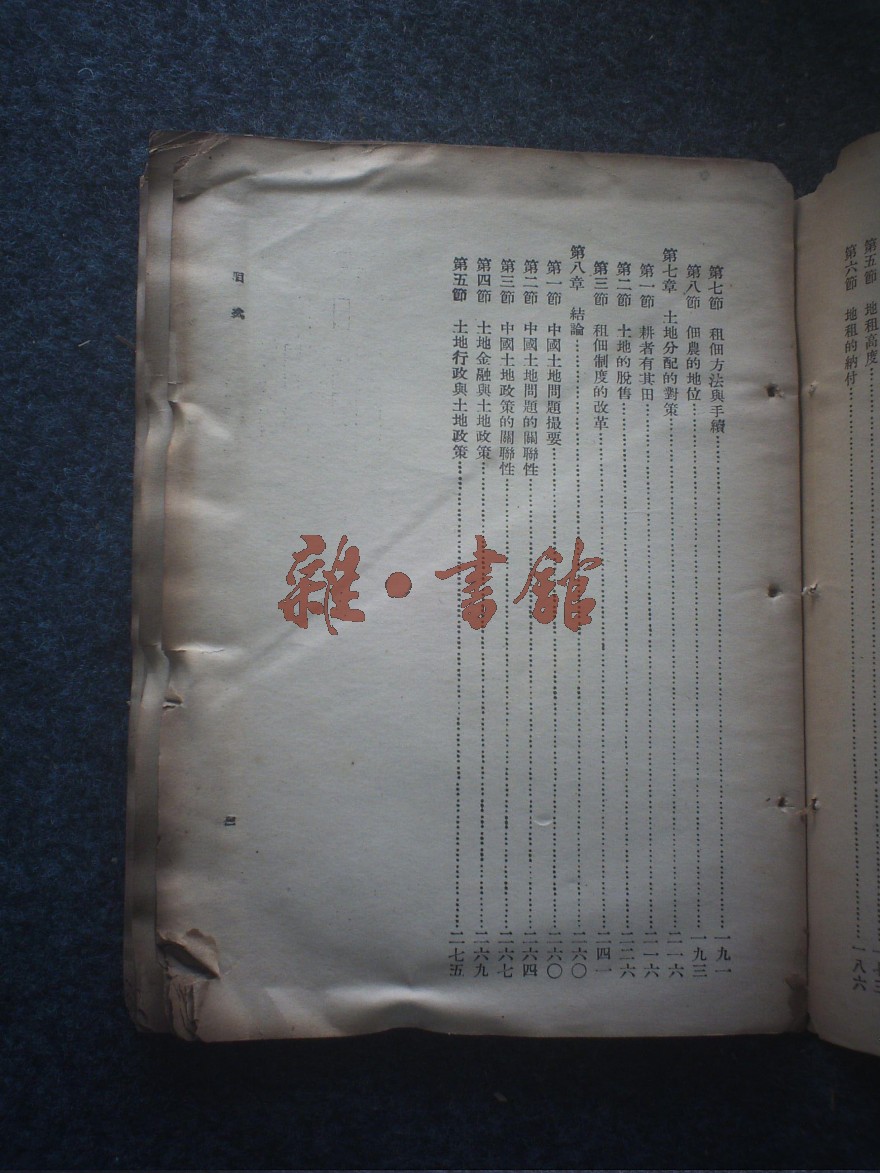 第五節　地租高度
第六節　地租的納付……一八六
第七節　租佃方法與手續……一九一
第八節　佃農的地位……一九三
第七章　土地分配的對策……二一六
第一節　耕者有其田……二一六
第二節　土地的脫售……二二六
第三節　租佃制度的改革……二四一
第八章　結論……二六〇
第一節　中國土地問題撮要……二六〇
第二節　中國土地問題的關聯性……二六四
第三節　中國土地政策的關聯性……二六七
第四節　土地金融與土地政策……二六九
第五節　土地行政與土地政策……二七五
目次
雜·書館